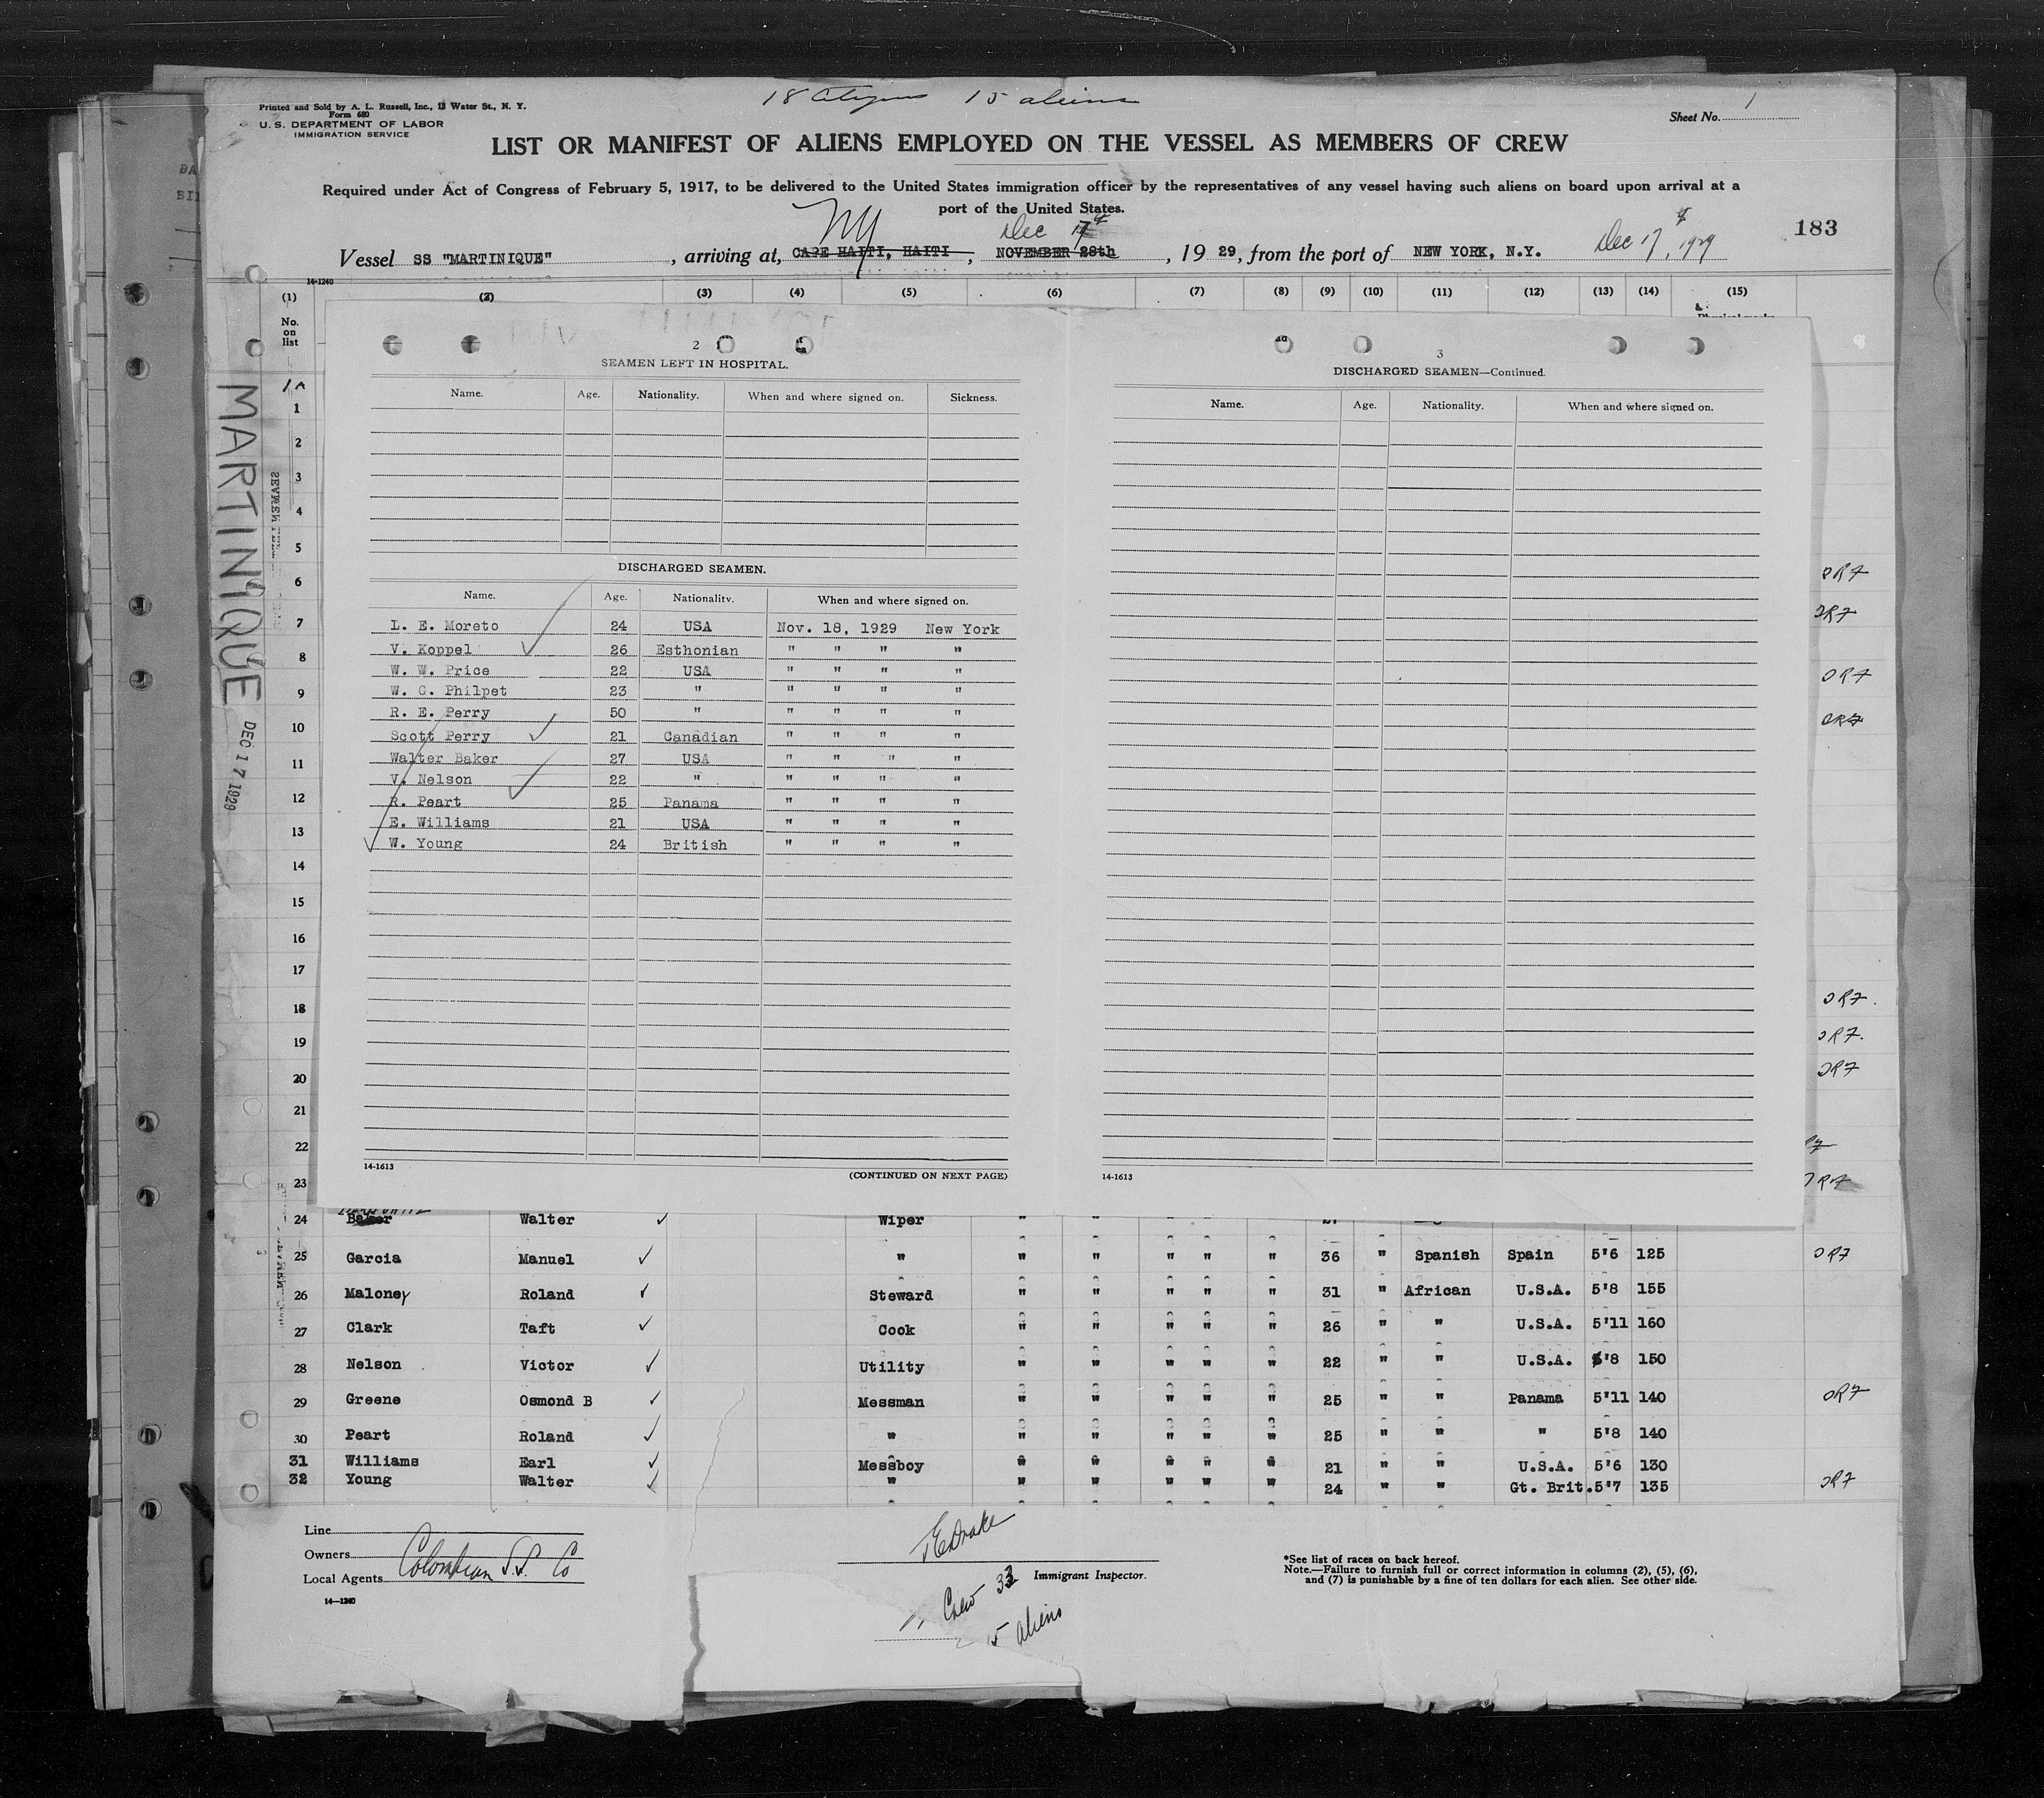 18 Citizens 15 aliens
Printed and Sold by A. L. Russell, Inc., 13 Water St., N. Y.
Form 680
U. S. DEPARTMENT OF LABOR
IMMIGRATION SERVICE
Sheet No. 1
LIST OR MANIFEST OF ALIENS EMPLOYED ON THE VESSEL AS MEMBERS OF CREW
Required under Act of Congress of February 5, 1917, to be delivered to the United States immigration officer by the representatives of any vessel having such aliens on board upon arrival at a
port of the United States.
NY Dec 17th
183
Vessel SS "MARTINIQUE", arriving at, CAPE HAITI, HAITI, NOVEMBER 28th, 1929, from the port of NEW YORK, N.Y. Dec 17, 1929
14-1240
(1) (2) (3) (4) (5) (6) (7) (8) (9) (10) (11) (12) (13) (14) (15)
No. on list
MARTINIQUE
DEC 17 1929
1A
1
2
3
4
5
6
7
8
9
10
11
12
13
14
15
16
17
18
19
20
21
22
23
2
SEAMEN LEFT IN HOSPITAL.
Name. Age. Nationality. When and where signed on. Sickness.
DISCHARGED SEAMEN.
Name. Age. Nationality. When and where signed on.
L. E. Moreto 24 USA Nov. 18, 1929 New York
V. Koppel 26 Esthonian " " " "
W. W. Price 22 USA " " " "
W. C. Philpet 23 " " " " "
R. E. Perry 50 " " " " "
Scott Perry 21 Canadian " " " "
Walter Baker 27 USA " " " "
V. Nelson 22 " " " " "
R. Peart 25 Panama " " " "
E. Williams 21 USA " " " "
W. Young 24 British " " " "
14-1613
(CONTINUED ON NEXT PAGE)
3
DISCHARGED SEAMEN—Continued.
Name. Age. Nationality. When and where signed on.
14-1613
24 Baker Walter ✓ Wiper " " " " "
25 Garcia Manuel ✓ " " " " " " 36 " Spanish Spain 5'6 125 OR7
26 Maloney Roland ✓ Steward " " " " " 31 " African U.S.A. 5'8 155
27 Clark Taft ✓ Cook " " " " " 26 " " U.S.A. 5'11 160
28 Nelson Victor ✓ Utility " " " " " 22 " " U.S.A. 5'8 150
29 Greene Osmond B ✓ Messman " " " " " 25 " " Panama 5'11 140 OR7
30 Peart Roland ✓ " " " " " " 25 " " " 5'8 140
31 Williams Earl ✓ Messboy " " " " " 21 " " U.S.A. 5'6 130
32 Young Walter ✓ " " " " " " 24 " " Gt. Brit. 5'7 135 OR7
Line
Owners
Local Agents Colombian S.S. Co
14—1240
Immigrant Inspector.
Crew 33
15 aliens
*See list of races on back hereof.
Note.—Failure to furnish full or correct information in columns (2), (5), (6),
and (7) is punishable by a fine of ten dollars for each alien. See other side.